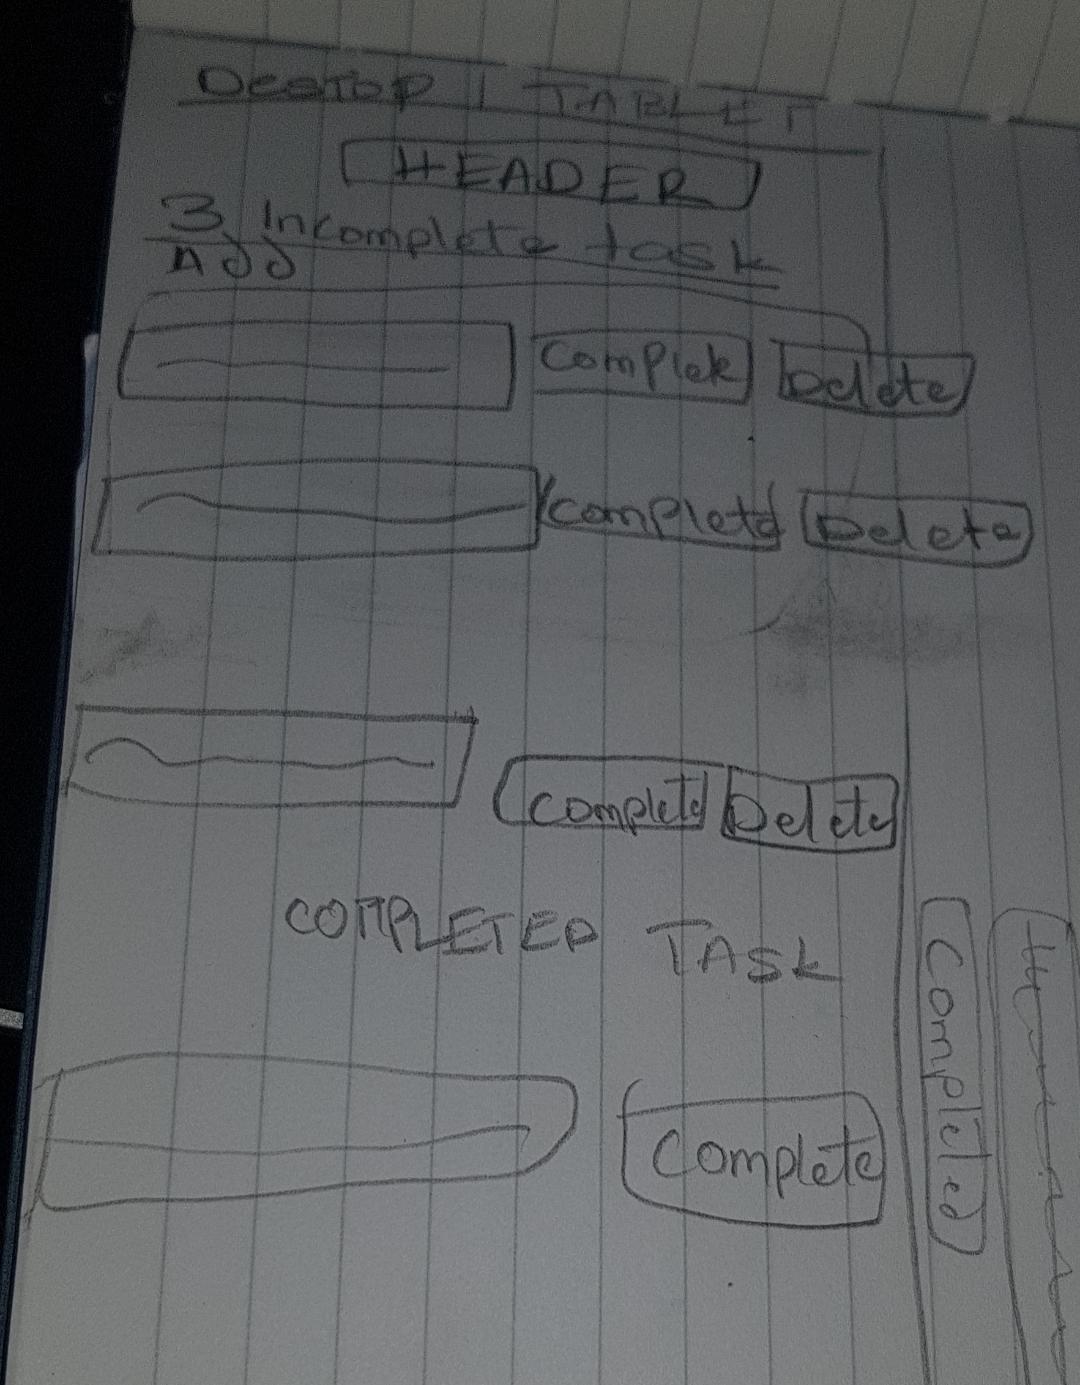 Desktop | TABLET
HEADER
3 Incomplete task
Add
Complete Delete
Complete Delete
Complete Delete
COMPLETED TASK
Complete
Completed